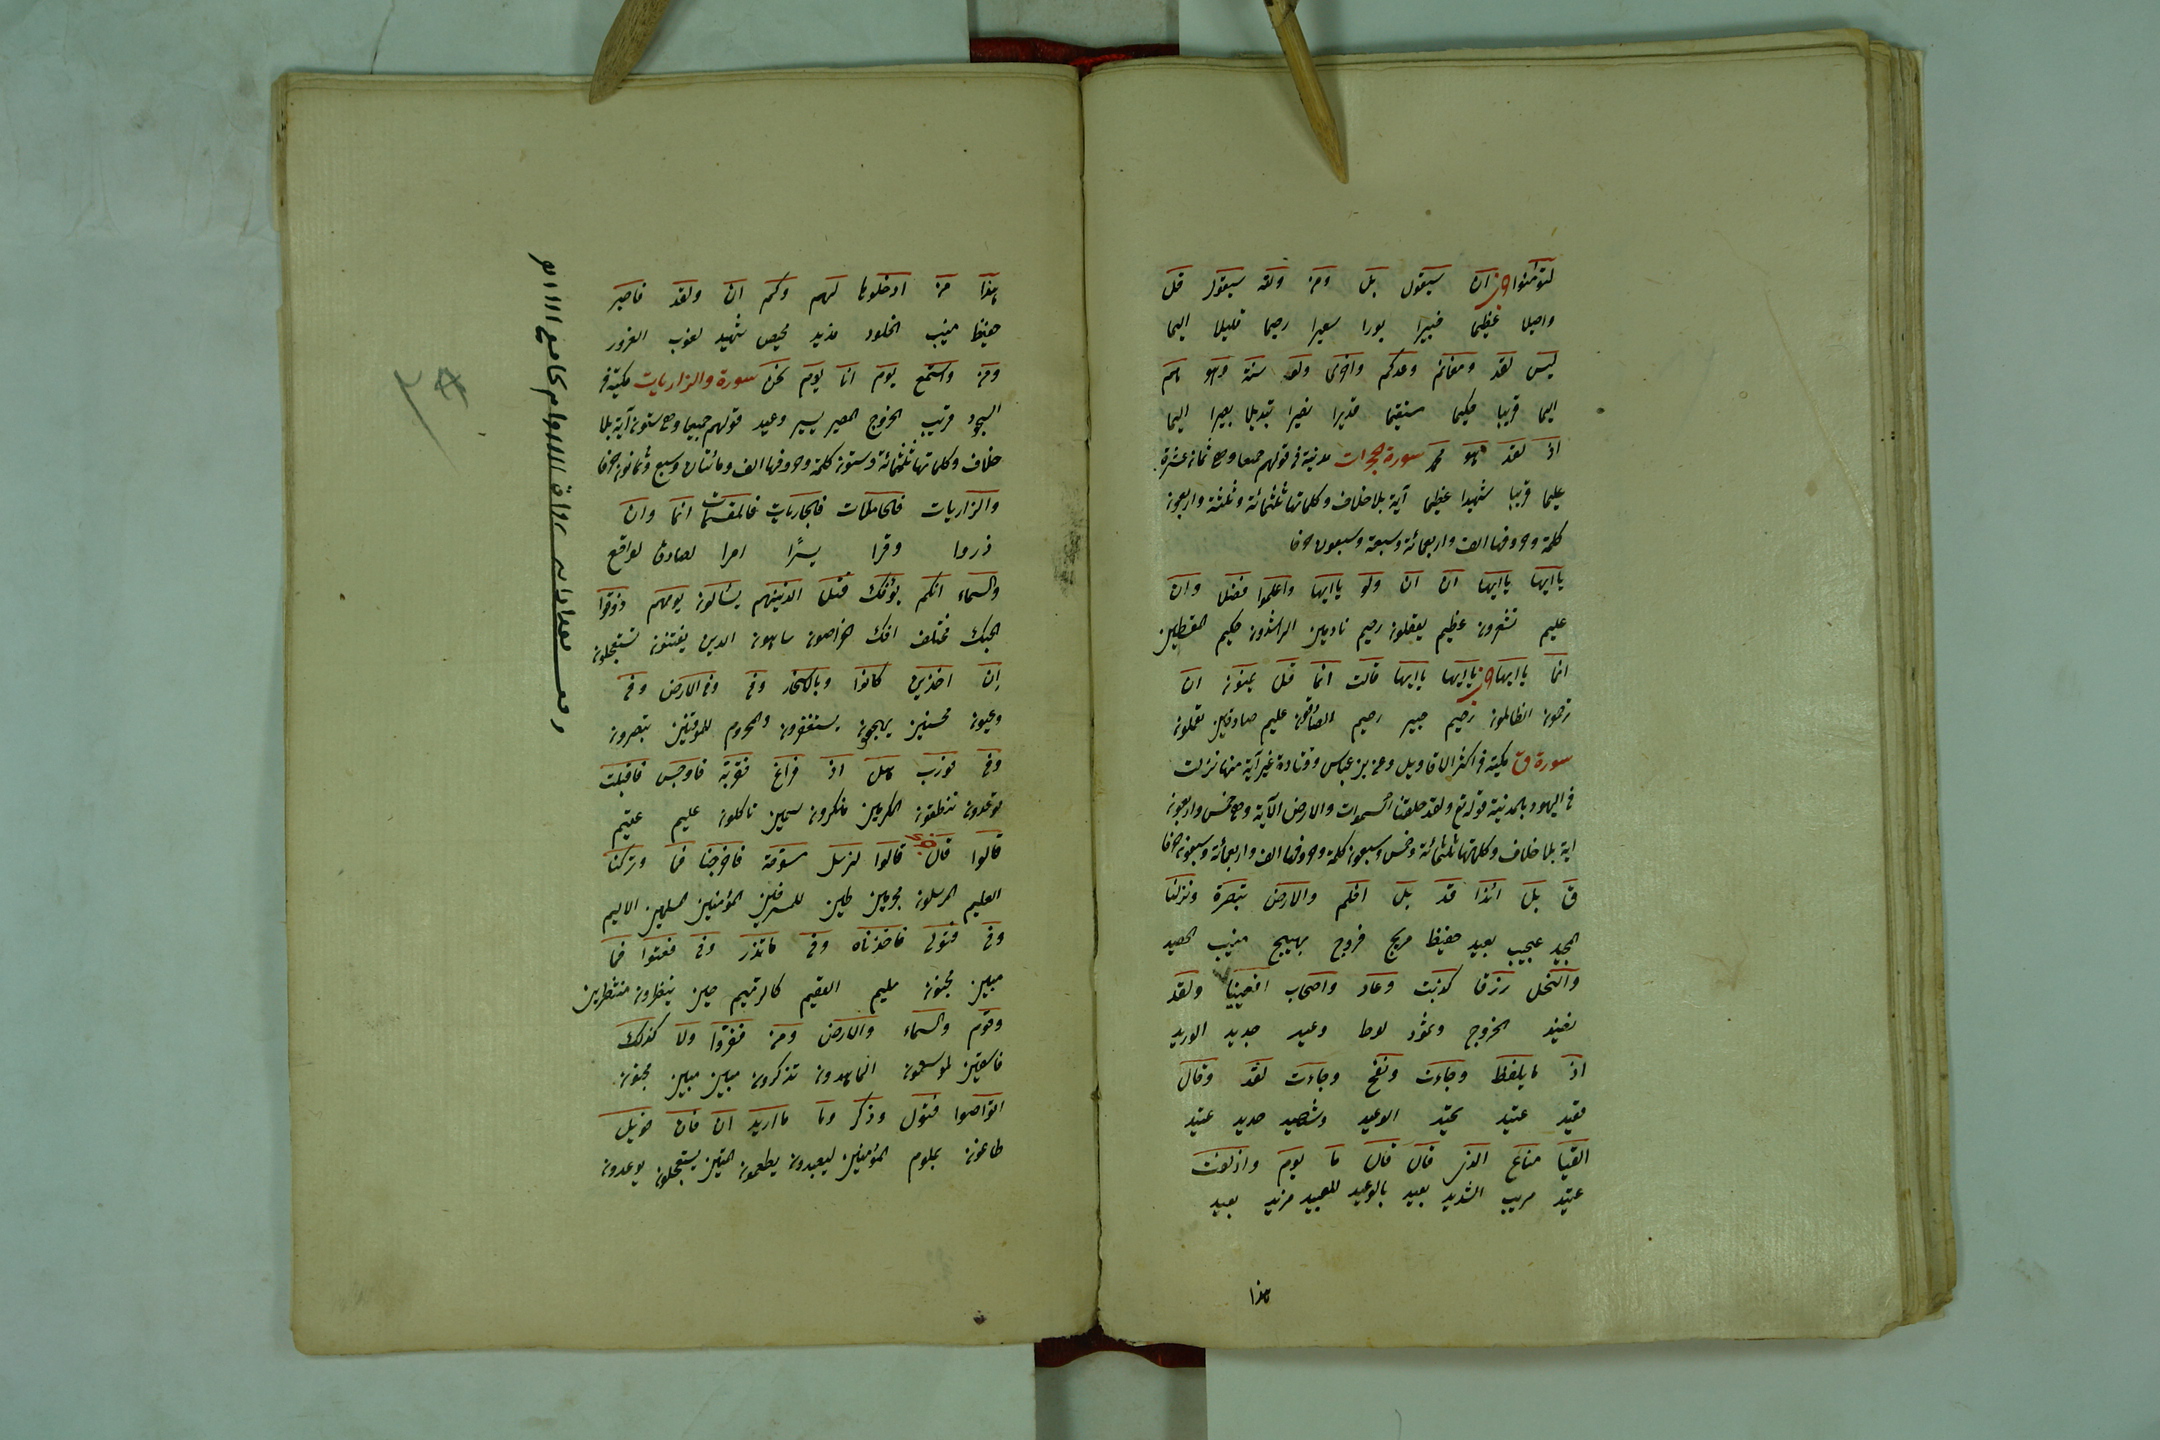 لتؤمنوا ان سيقول بل ومن ولله سيقول قل
واصيلا عظيما خبيرا بورا سعيرا رحيما قليلا اليما
ليس لقد ومغانم وعدكم واخرى ولو سنة وهو هم
اليما قريبا حكيما مستقيما قديرا نصيرا تبديلا بصيرا اليما
اذ لقد هو محمد سورة حجرات مدنية فى قولهم جميعا وهى ثمان عشرة
عليما قريبا شهيدا عظيما آية بلا خلاف وكلماتها ثلثمائة وثلثة واربعون
كلمة وحروفها الف واربعمائة وسبعة وسبعون حرفا
ياايها ياايها ان ان ولو ياايها واعلموا فضلا وان
عليم تشعرون عظيم يعقلون رحيم نادمين الراشدون حكيم المقسطين
انما ياايها ياايها ياايها قالت انما قل يمنون ان
ترحمون الظالمون رحيم خبير رحيم الصادقون عليم صادقين تعملون
سورة ق مكية فى اكثر الاقاويل وعن بن عباس وقتادة غير آية منها نزلت
فى اليهود بالمدينة قوله تع ولقد خلقنا السموات والارض الآية وهى خمس واربعون
اية بلا خلاف وكلماتها ثلثمائة وخمس وسبعون كلمة وحروفها الف واربعمائة وسبعون حرفا
ق بل ائذا قد بل افلم والارض تبصرة ونزلنا
المجيد عجيب بعيد حفيظ مريج فروج بهيج منيب الحصيد
والنخل رزقا كذبت وعاد واصحاب افعيينا ولقد
نضيد الخروج وثمود لوط وعيد جديد الوريد
اذ ما يلفظ وجاءت ونفخ وجاءت لقد وقال
قعيد عتيد تحيد الوعيد وشهيد حديد عتيد
القيا مناع الذى قال قال ما يوم وازلفت
عنيد مريب الشديد بعيد بالوعيد للعبيد مزيد بعيد
هذا
هذا من ادخلوها لهم وكم ان ولقد فاصبر
حفيظ منيب الخلود مزيد محيص شهيد لغوب الغروب
ومن واستمع يوم انا يوم نحن سورة والزاريات مكية فى
السجود قريب الخروج المصير يسير وعيد قولهم جميعا وهى ستون آية بلا
خلاف وكلماتها ثلثمائة وستون كلمة وحروفها الف ومائتان وسبع وثمانون حرفا
والزاريات فالحاملات فالجاريات فالمقسمات انما وان
ذروا وقرا يسرًا امرا لصادق لواقع
والسماء انكم يؤفك قتل الذينهم يسألون يومهم ذوقوا
الحبك مختلف افك الخراصون ساهون الدين يفتنون تستعجلون
إن اخذين كانوا وبالاسحار وفى وفى الارض وفى
وعيون محسنين يهجعون يستغفرون والمحروم للموقنين تبصرون
وفى فورب هل اذ فراغ فقربه فاوجس فاقبلت
توعدون تنطقون المكرمين منكرون سمين تاكلون عليم عقيم
قالوا قال قالوا لنرسل مسومة فاخرجنا فما وتركنا
العليم المرسلون مجرمين طين للمسرفين المؤمنين المسلمين الاليم
وفى فتولى فاخذناه وفى ماتذر وفى فعتوا فما
مبين مجنون مليم العقيم كالرميم حين ينظرون منتظرين
وقوم والسماء والارض ومن ففروا ولا كذلك
فاسقين لموسعون الماهدون تذكرون مبين مبين مجنون
اتواصوا فتول وذكر وما ما اريد ان فان فويل
طاغون بملوم المؤمنين ليعبدون يطعمون المتين يستعجلون يوعدون